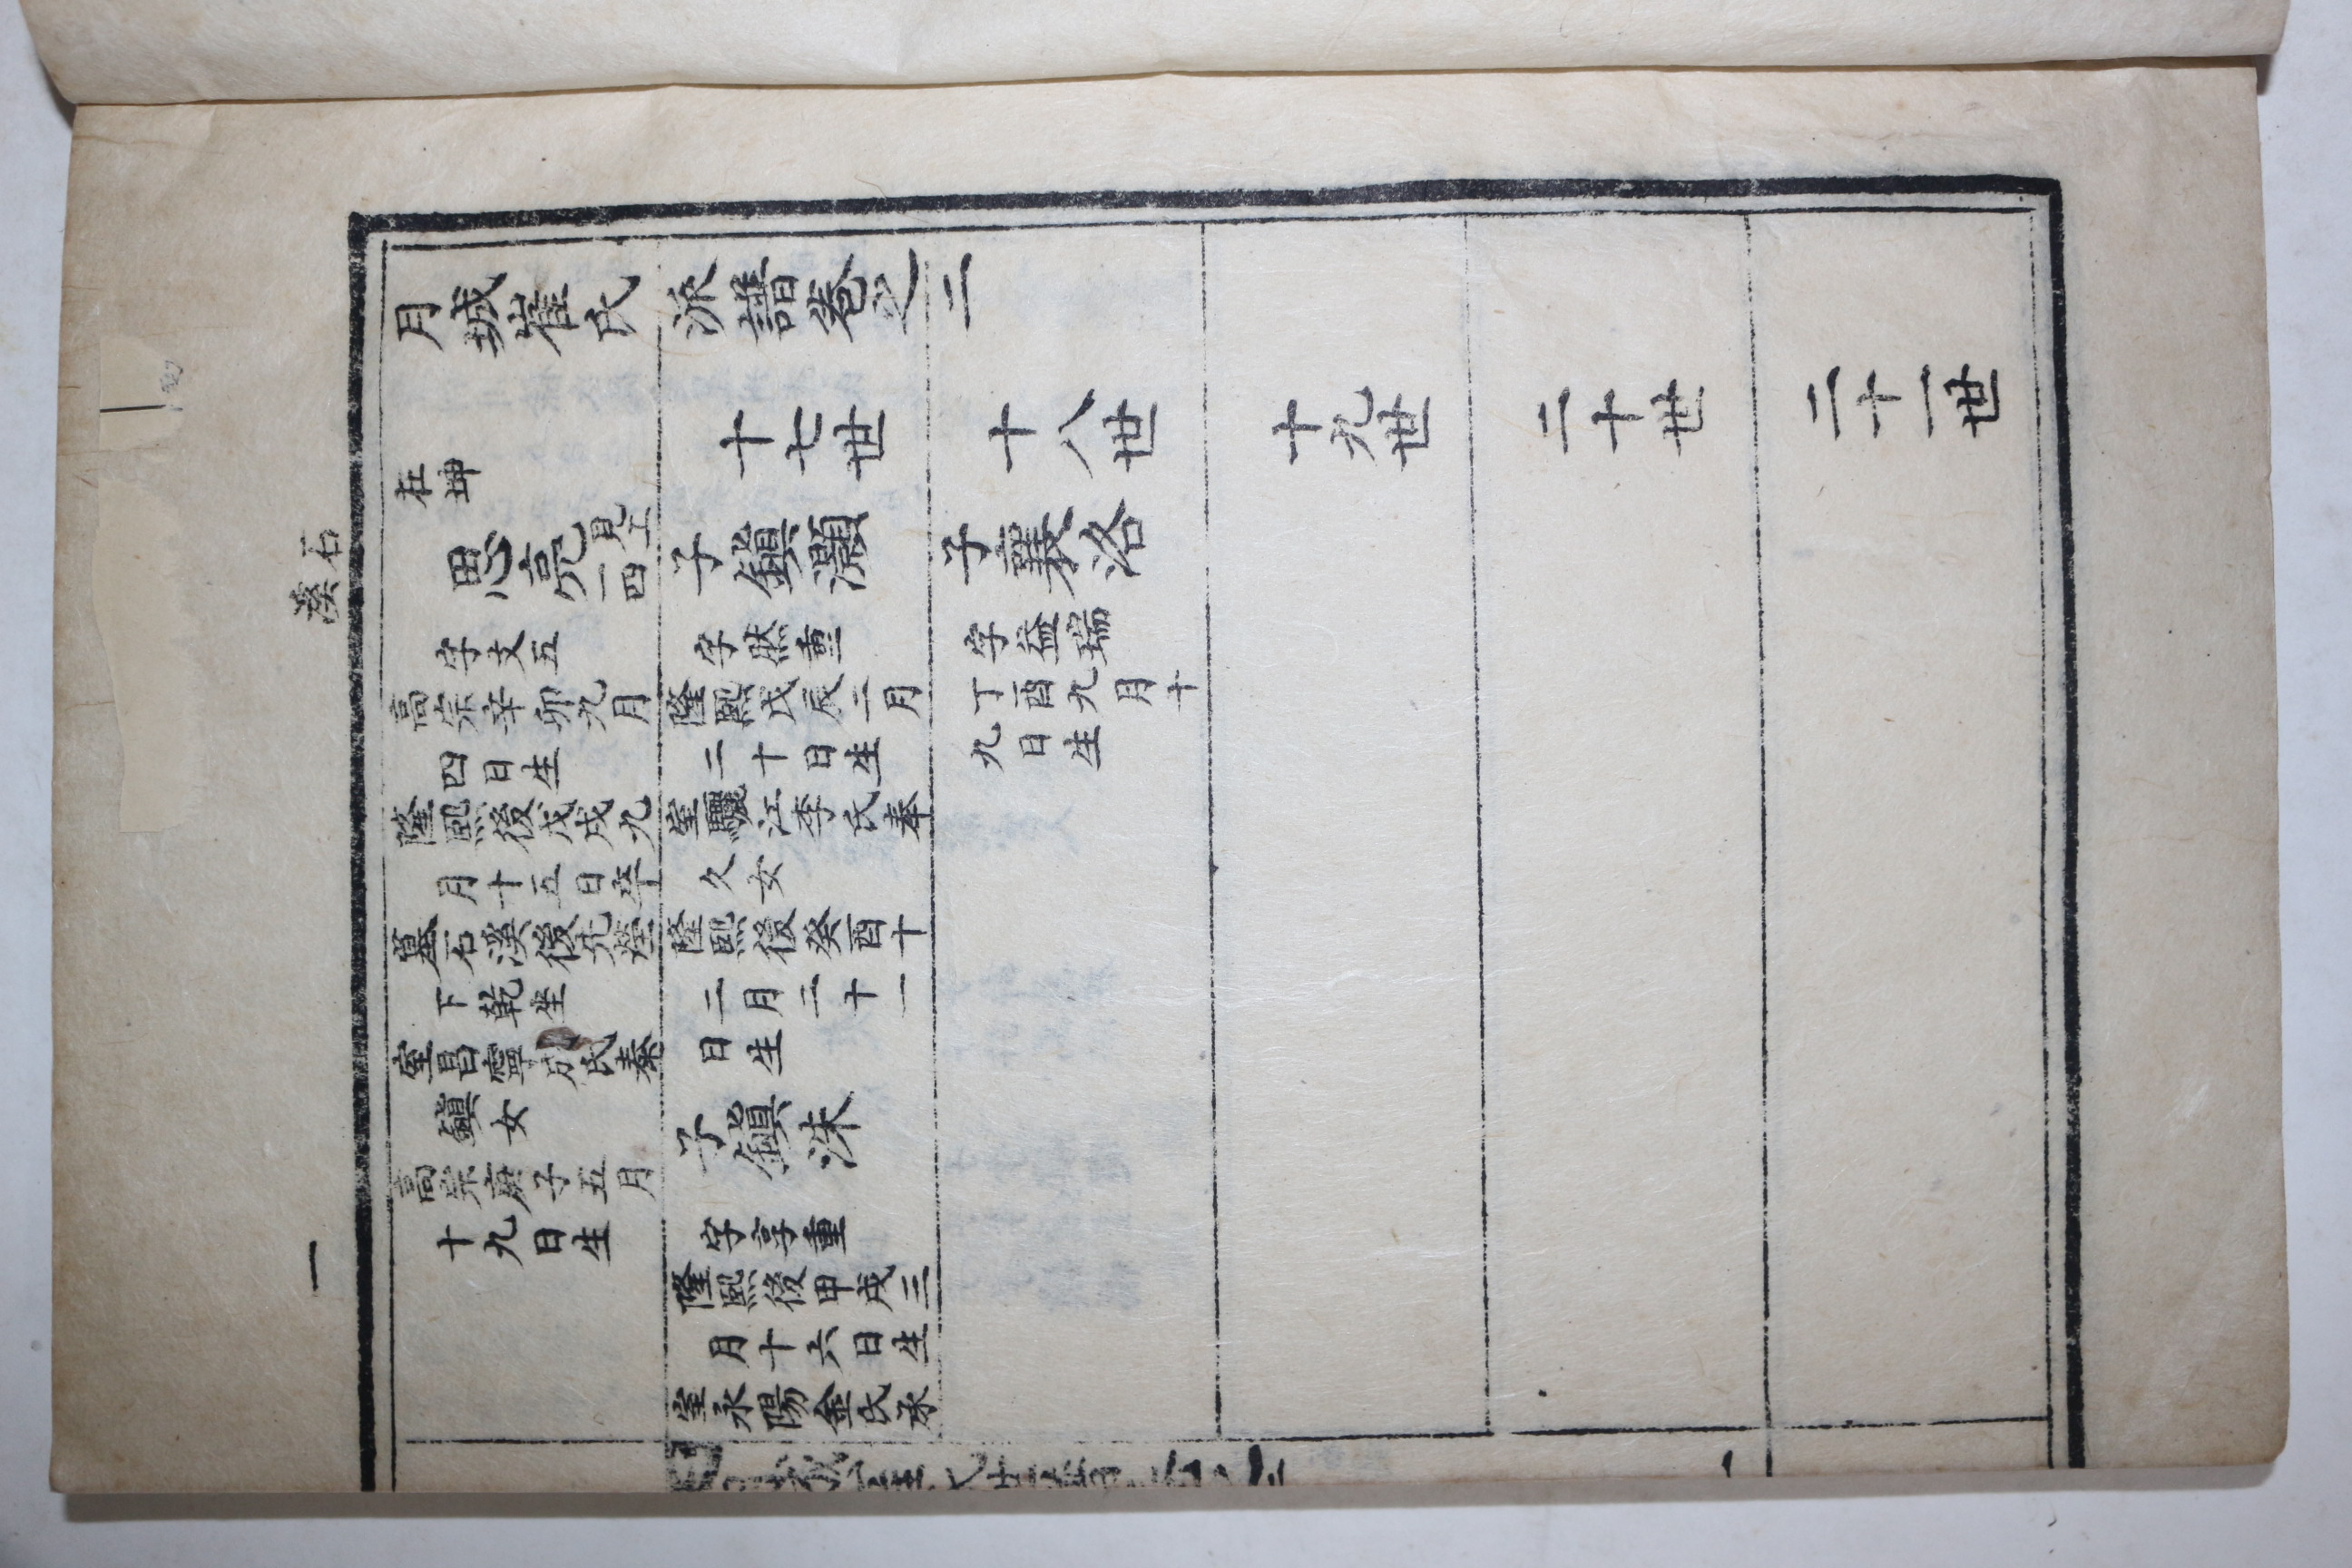 月城崔氏派譜卷之二
十七世
十八世
十九世
二十世
二十一世
在坤
思亮
見上
一四
字支五
高宗辛卯九月
四日生
隆熙後戊戌九
月十五日卒
墓石溪後先塋
下乾坐
室昌寧成氏秦
鎮女
高宗庚子五月
十九日生
子鎮灝
字然重
隆熙戊辰二月
二十日生
室驪江李氏奉
久女
隆熙後癸酉十
二月二十一
日生
子鎮洙
字享重
隆熙後甲戌三
月十六日生
室永陽金氏承
子襄洛
字益瑞
丁酉九月十
九日生
石溪
一